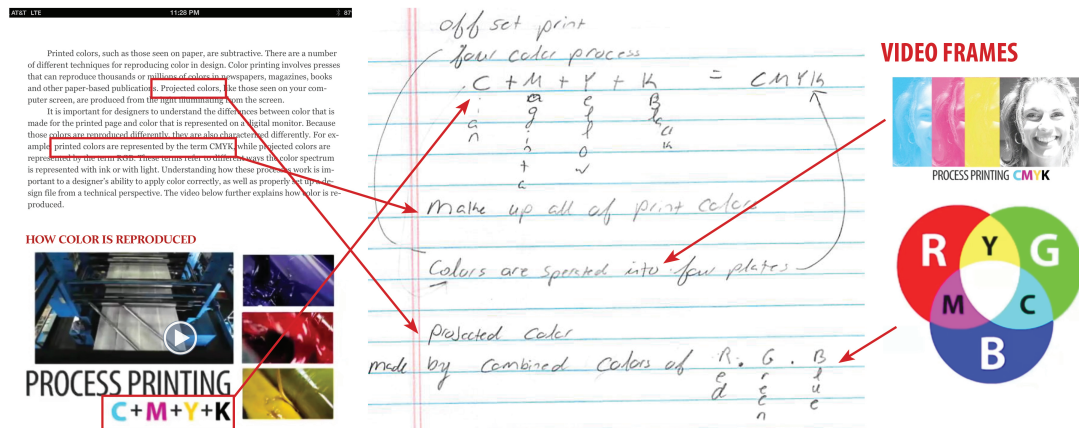 AT&T LTE 11:28 PM 87
Printed colors, such as those seen on paper, are subtractive. There are a number
of different techniques for reproducing color in design. Color printing involves presses
that can reproduce thousands or millions of colors in newspapers, magazines, books
and other paper-based publications. Projected colors, like those seen on your com-
puter screen, are produced from the light illuminating from the screen.
It is important for designers to understand the differences between color that is
made for the printed page and color that is represented on a digital monitor. Because
those colors are reproduced differently, they are also characterized differently. For ex-
ample, printed colors are represented by the term CMYK, while projected colors are
represented by the term RGB. These terms refer to different ways the color spectrum
is represented with ink or with light. Understanding how these process work is im-
portant to a designer's ability to apply color correctly, as well as properly set up a de-
sign file from a technical perspective. The video below further explains how color is re-
produced.
HOW COLOR IS REPRODUCED
PROCESS PRINTING
C+M+Y+K
off set print
four color process
C + M + Y + K = CMYK
make up all of print colors
Colors are sperated into four plates
projected color
made by combined colors of Red. Green. Blue
VIDEO FRAMES
PROCESS PRINTING CMYK
R Y G
M C
B